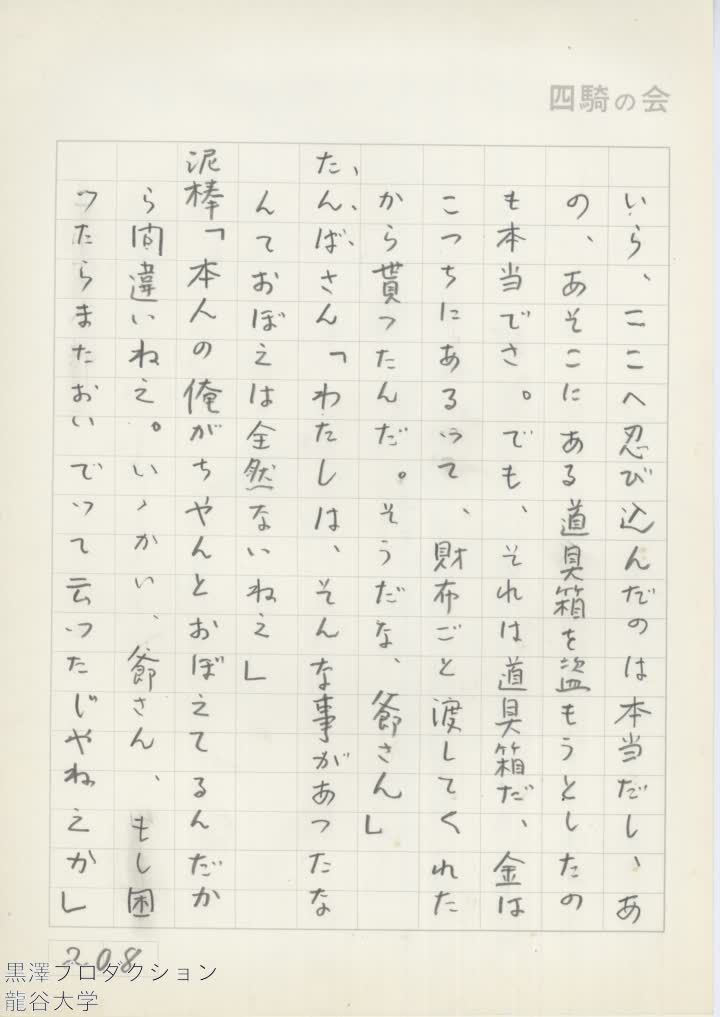 四騎の会
いら、ここへ忍び込んだのは本当だし、あ
の、あそこにある道具箱を盗もうとしたの
も本当でさ。でも、それは道具箱だ、金は
こつちにあるつて、財布ごと渡してくれた
から貰つたんだ。そうだな、爺さん」
たんばさん「わたしは、そんな事があつたな
んておぼえは全然ないねえ」
泥棒「本人の俺がちやんとおぼえてるんだか
ら間違いねえ。いゝかい、爺さん、もし困
つたらまたおいでつて云つたじやねえか」
208
黒澤プロダクション
龍谷大学